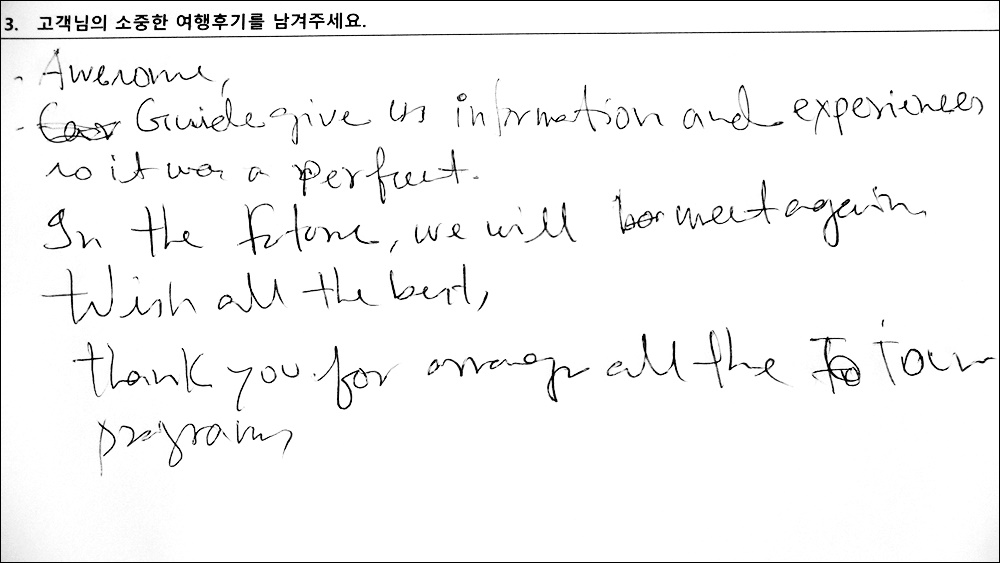 3. 고객님의 소중한 여행후기를 남겨주세요.
- Awesome,
- Guide give us information and experiences
so it was a perfect.
In the future, we will meet again.
Wish all the best,
thank you for arrange all the Tour
programs